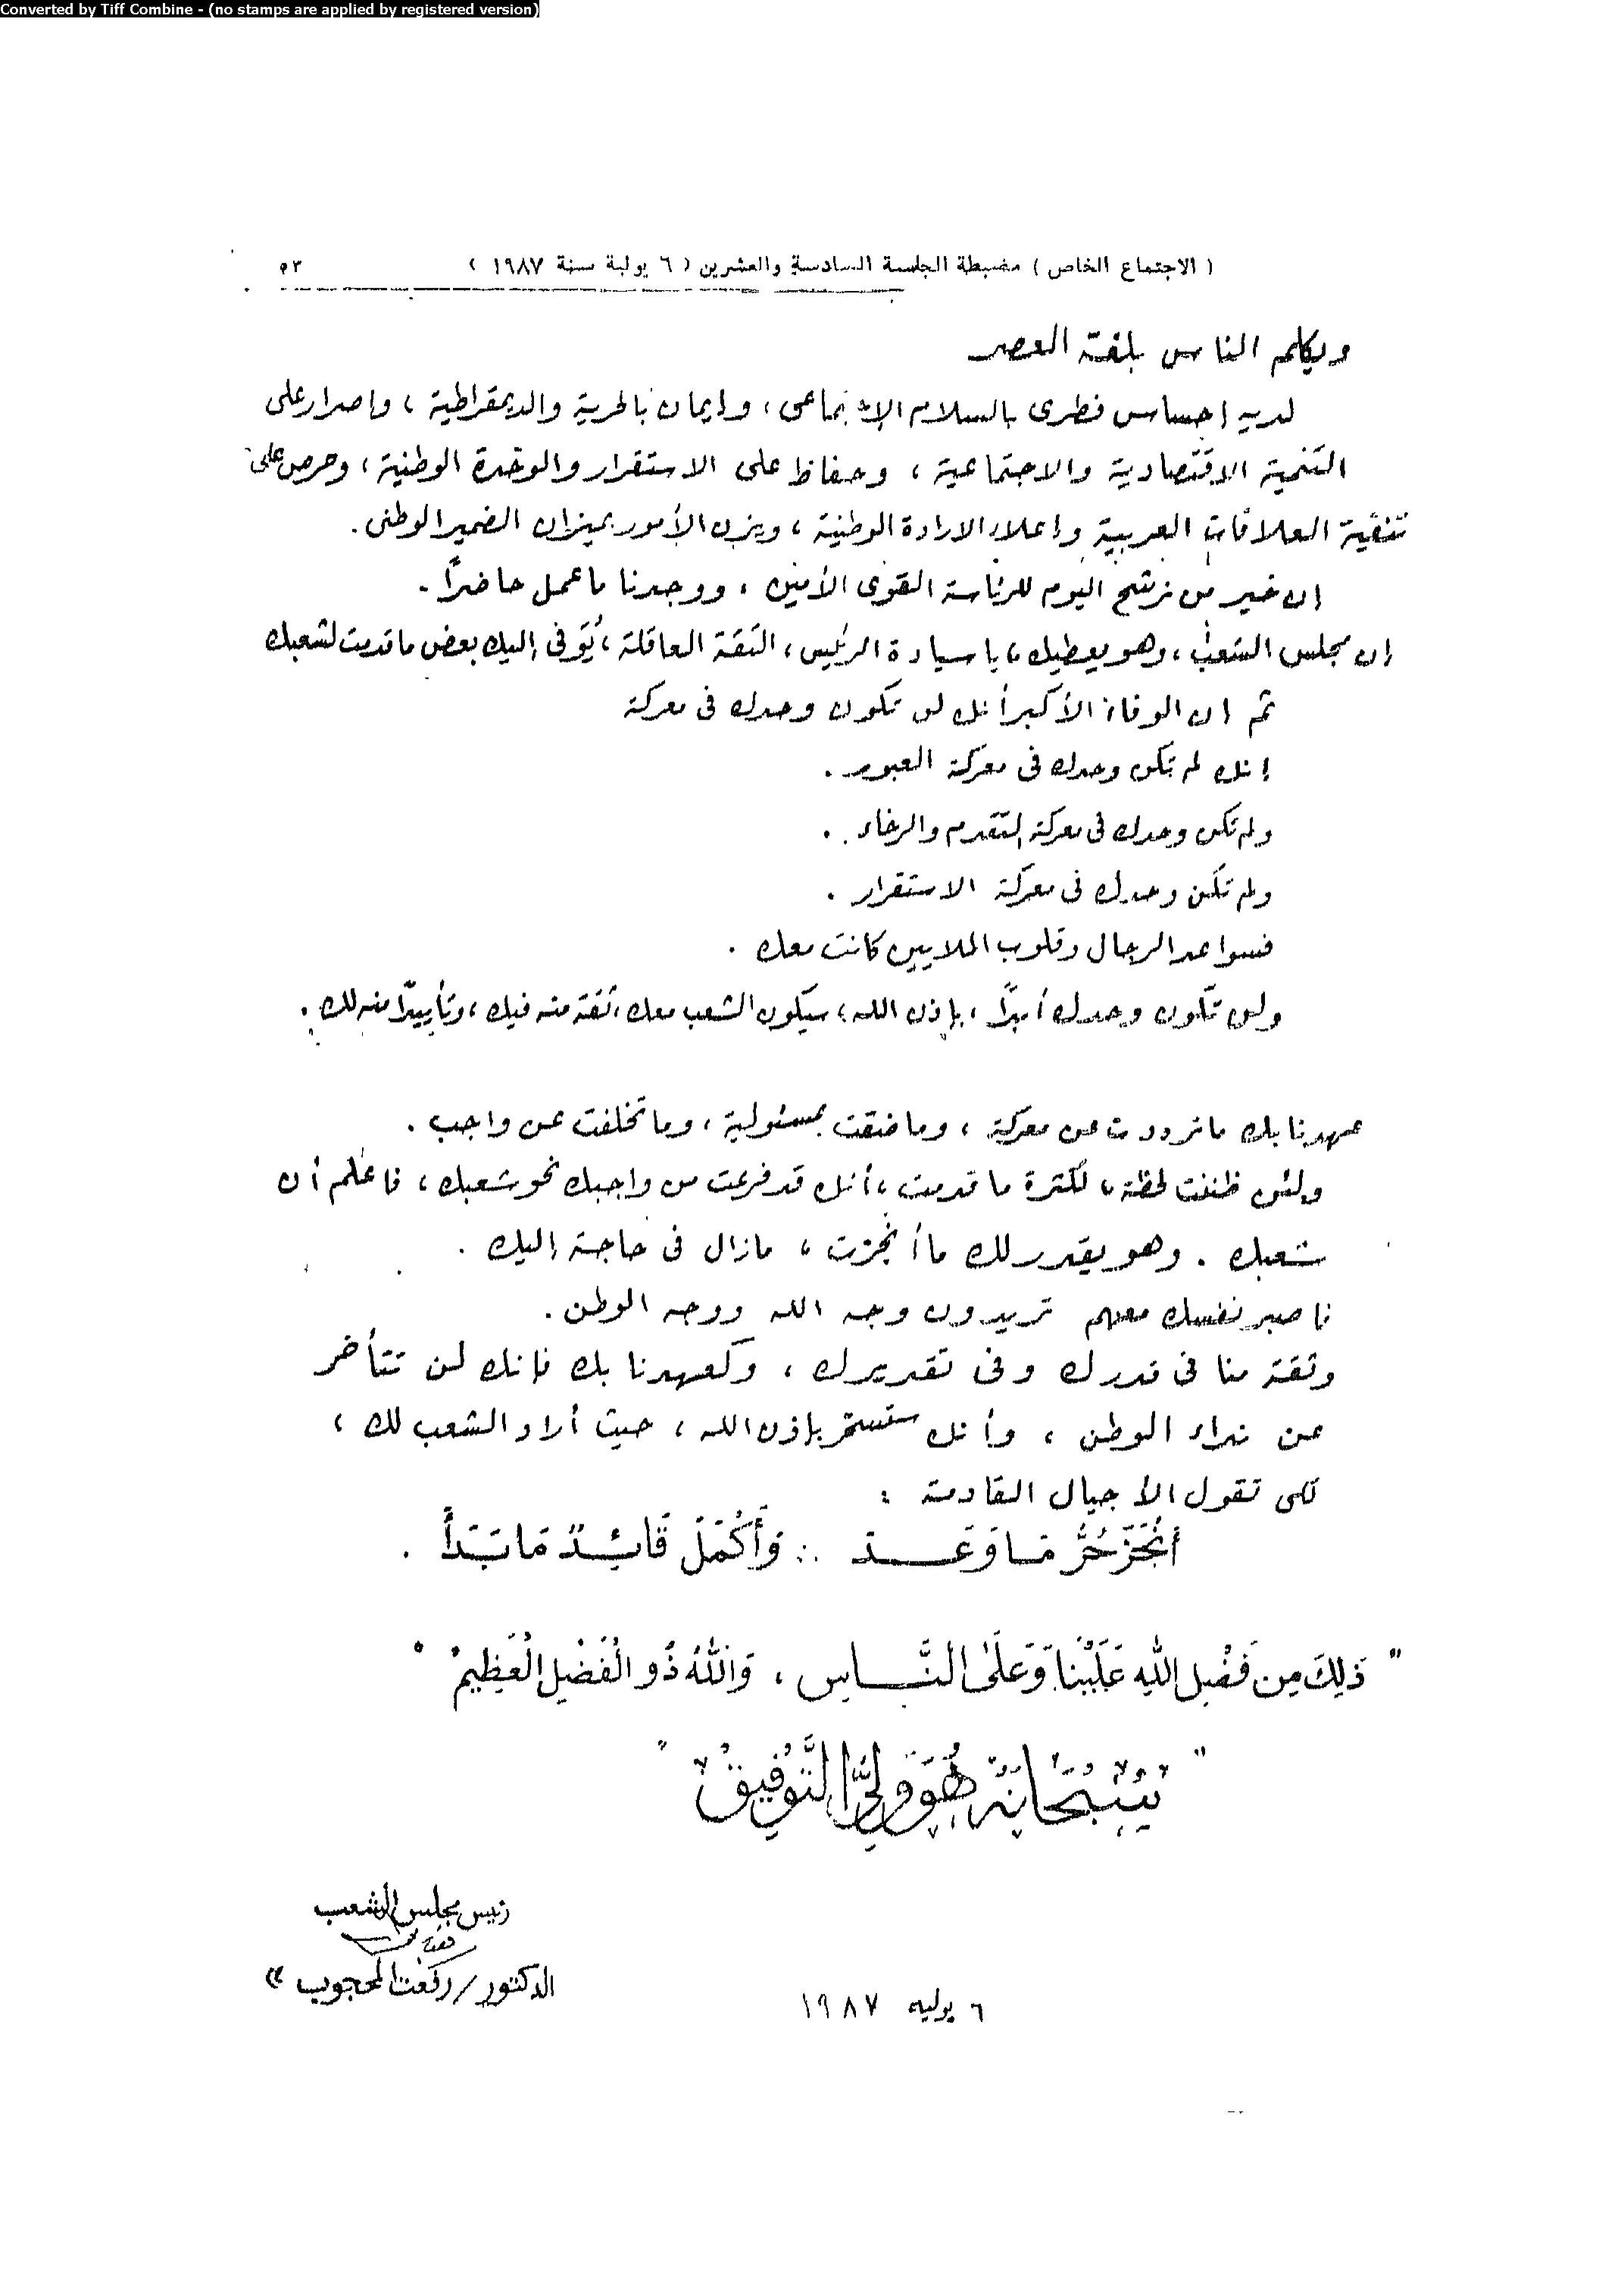 Converted by Tiff Combine - (no stamps are applied by registered version)
( الاجتماع الخاص ) مضبطة الجلسة السادسة والعشرين ( ٦ يولية سنة ١٩٨٧ ) ٥٣
ويكلم الناس بلغة العصر
لديه إحساس فطرى بالسلام الاجتماعى ، وإيمان بالحرية والديمقراطية ، وإصرار على
التنمية الاقتصادية والاجتماعية ، وحفاظ على الاستقرار والوحدة الوطنية ، وحرص على
تنقية العلاقات العربية وإعلاء الارادة الوطنية ، ويزن الأمور بميزان الضمير الوطنى .
إن خير من نرشح اليوم للرئاسة القوى الأمين ، ووجدنا ما عمل حاضراً .
إن مجلس الشعب ، وهو يعطيك ، يا سيادة الرئيس ، الثقة العاقلة ، يُوَفى إليك بعض ما قدمت لشعبك
ثم إن الوفاء الأكبر أنك لن تكون وحدك فى معركة
إنك لم تكن وحدك فى معركة العبور .
ولم تكن وحدك فى معركة التقدم والرخاء .
ولم تكن وحدك فى معركة الاستقرار .
فسواعد الرجال وقلوب الملايين كانت معك .
ولن تكون وحدك أبداً ، بإذن الله ، سيكون الشعب معك ، ثقة منه فيك ، وتأييداً منه لك .
عهدنا بك ما ترددت عن معركة ، وما ضقت بمسئولية ، وما تخلفت عن واجب .
ولئن ظننت لحظة ، لكثرة ما قدمت ، أنك قد فرغت من واجبك نحو شعبك ، فاعلم أن
شعبك . وهو يقدر لك ما أنجزت ، مازال فى حاجة إليك .
فاصبر نفسك معهم تريدون وجه الله ووجه الوطن .
وثقة منا فى قدرك وفى تقديرك ، وكعهدنا بك فإنك لن تتأخر
عن نداء الوطن ، وأنك ستستمر بإذن الله ، حيث أراد الشعب لك ،
لكى تقول الأجيال القادمة :
أَنْجَزَ حُرٌّ مَا وَعَد ∴ وَأَكْمَلَ قَائِدٌ مَا بَدَأَ .
" ذَلِكَ مِن فَضْلِ اللهِ عَلَيْنَا وَعَلَى النَّاسِ ، وَاللهُ ذُو الْفَضْلِ الْعَظِيمْ "
" سُبْحَانَهُ هُوَ وَلِيُّ التَّوْفِيقْ "
رئيس مجلس الشعب
الدكتور / رفعت المحجوب »
٦ يوليه ١٩٨٧